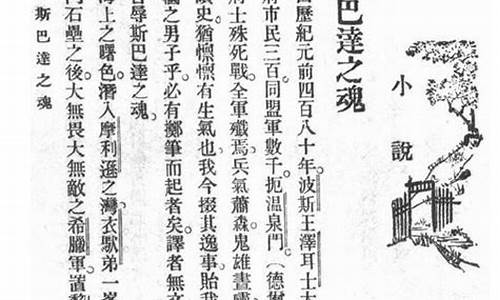 小說
巴達之魂
歷紀元前四百八十年。波斯王澤耳士大
府市民三百同盟軍數千。扼溫泉門。(德爾
將士殊死戰。全軍殲焉。兵氣蕭森。鬼雄晝嘯
讀史。猶懍懍有生氣也。我今掇其逸事。貽我
幗之男子乎。必有擲筆而起者矣。譯者無文
辱斯巴達之魂。
海上之曙色。潛入摩利遜之灣。衣馱第一峯
門石壘之後。大無畏大無敵之希臘軍。置黎
斯巴達之魂